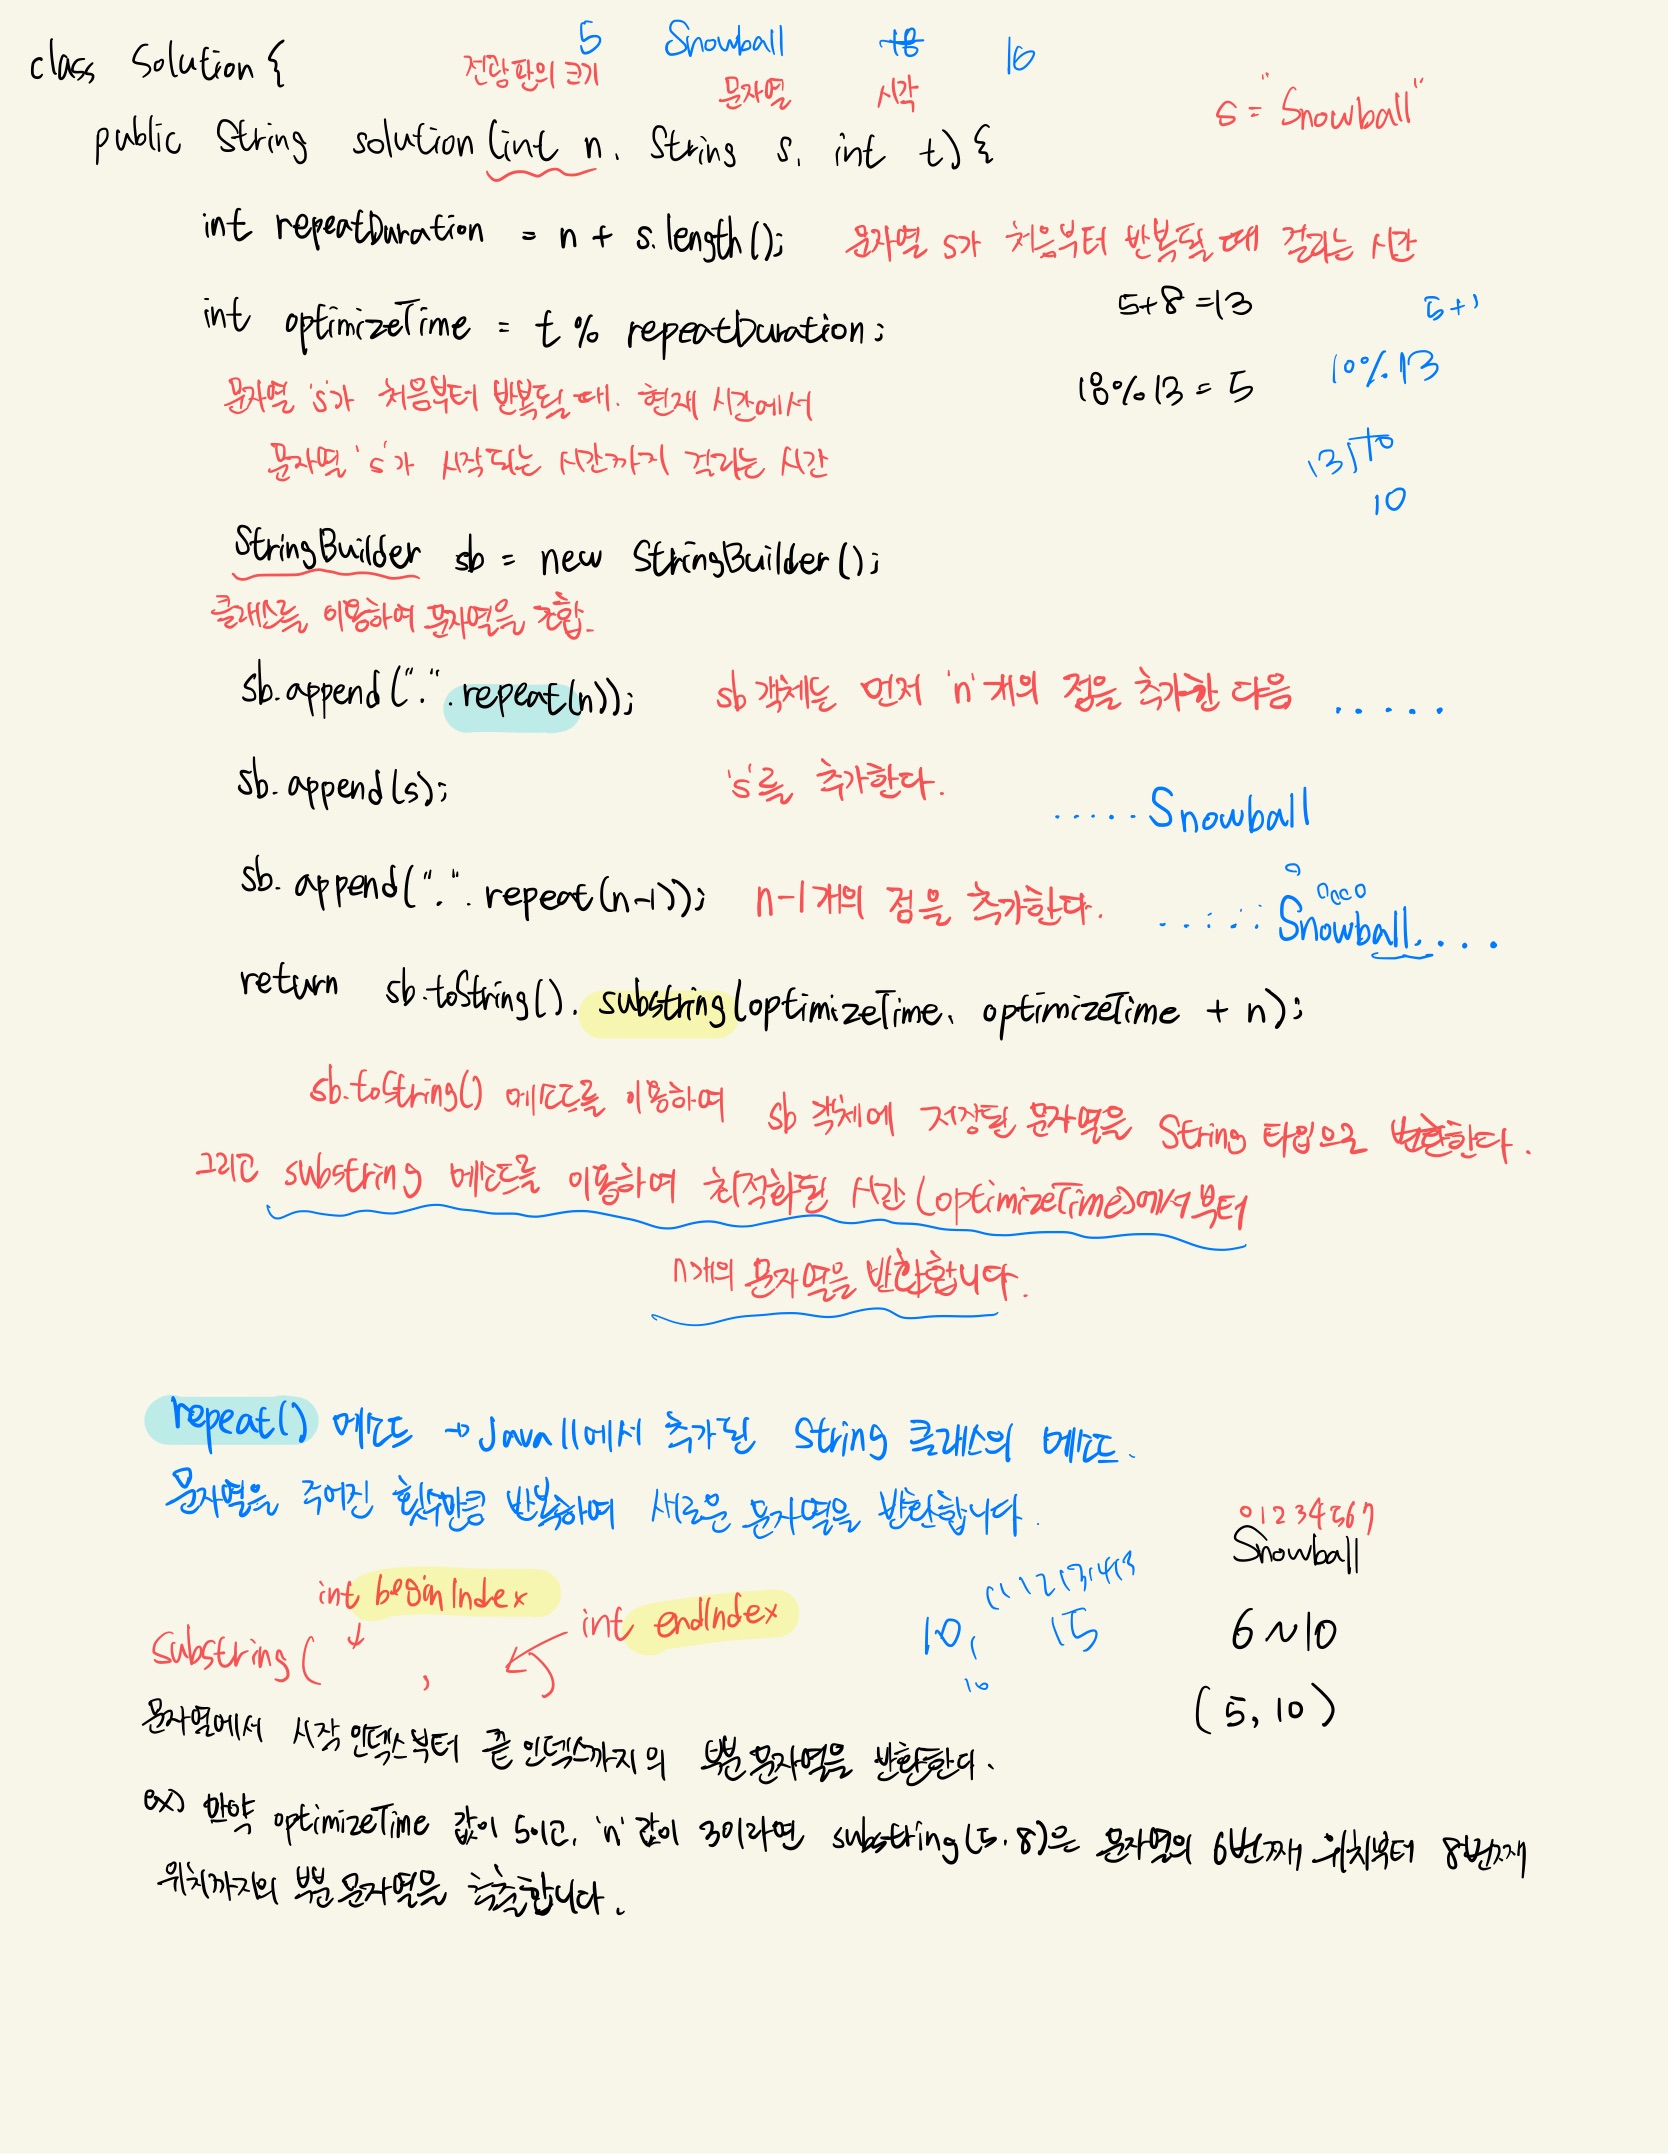 class Solution {
5 Snowball 18 10
전광판의 크기 문자열 시각
s = "Snowball"
public String solution (int n, String s, int t) {
int repeatDuration = n + s.length(); 문자열 s가 처음부터 반복될 때 걸리는 시간
5+8 = 13
5+
int optimizeTime = t % repeatDuration;
10%13
18%13 = 5
문자열 's'가 처음부터 반복될 때. 현재 시간에서
문자열 's'가 시작되는 시간까지 걸리는 시간
13 10
10
StringBuilder sb = new StringBuilder();
클래스를 이용하여 문자열을 조합.
sb.append(".".repeat(n)); sb 객체는 먼저 'n'개의 점을 추가한 다음 .....
sb.append(s); 's'를 추가한다.
.....Snowball
sb.append(".".repeat(n-1)); n-1개의 점을 추가한다.
.....Snowball....
return sb.toString().substring(optimizeTime, optimizeTime + n);
sb.toString() 메서드를 이용하여 sb 객체에 저장된 문자열을 String 타입으로 변환한다.
그리고 substring 메서드를 이용하여 최적화된 시간 (optimizeTime)에서부터
n개의 문자열을 반환합니다.
repeat() 메서드 → Java 11에서 추가된 String 클래스의 메서드.
문자열을 주어진 횟수만큼 반복하여 새로운 문자열을 반환합니다.
01234567
Snowball
int beginIndex
int endIndex
substring( ,
10, 15
10
6 ~ 10
(5, 10)
문자열에서 시작 인덱스부터 끝 인덱스까지의 부분 문자열을 반환한다.
ex) 만약 optimizeTime 값이 5이고, 'n' 값이 3이라면 substring(5, 8)은 문자열의 6번째 위치부터 8번째
위치까지의 부분 문자열을 추출합니다.